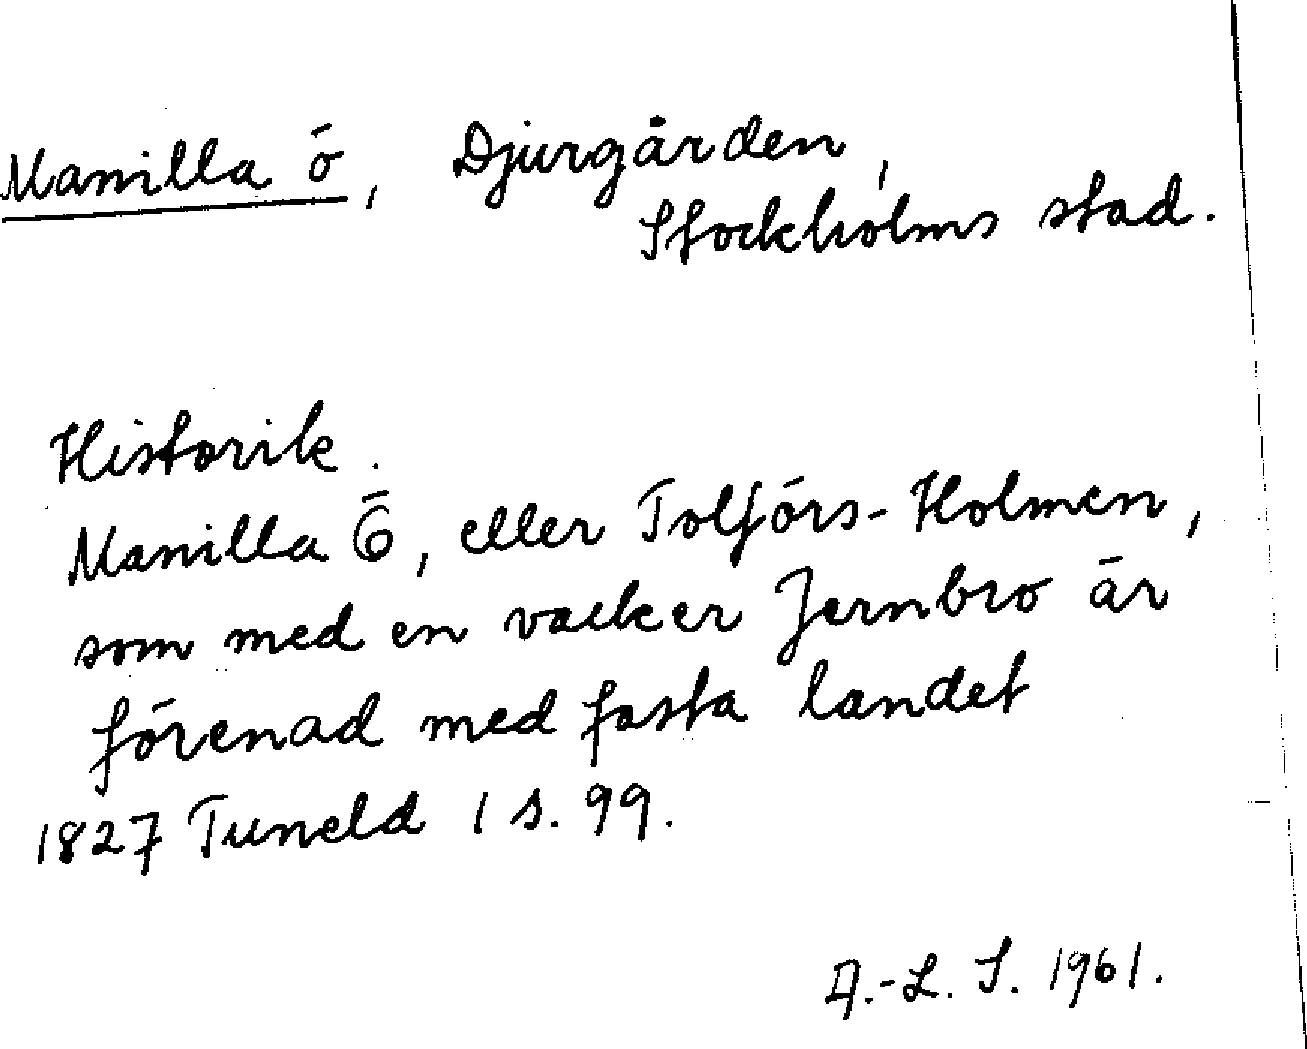 Manilla ö, Djurgården,
Stockholms stad.
Historik.
Manilla Ö, eller Toljörs-Holmen,
som med en vacker Jernbro är
förenad med fasta landet
1827 Tuneld 1 s. 99.
A.-L. S. 1961.